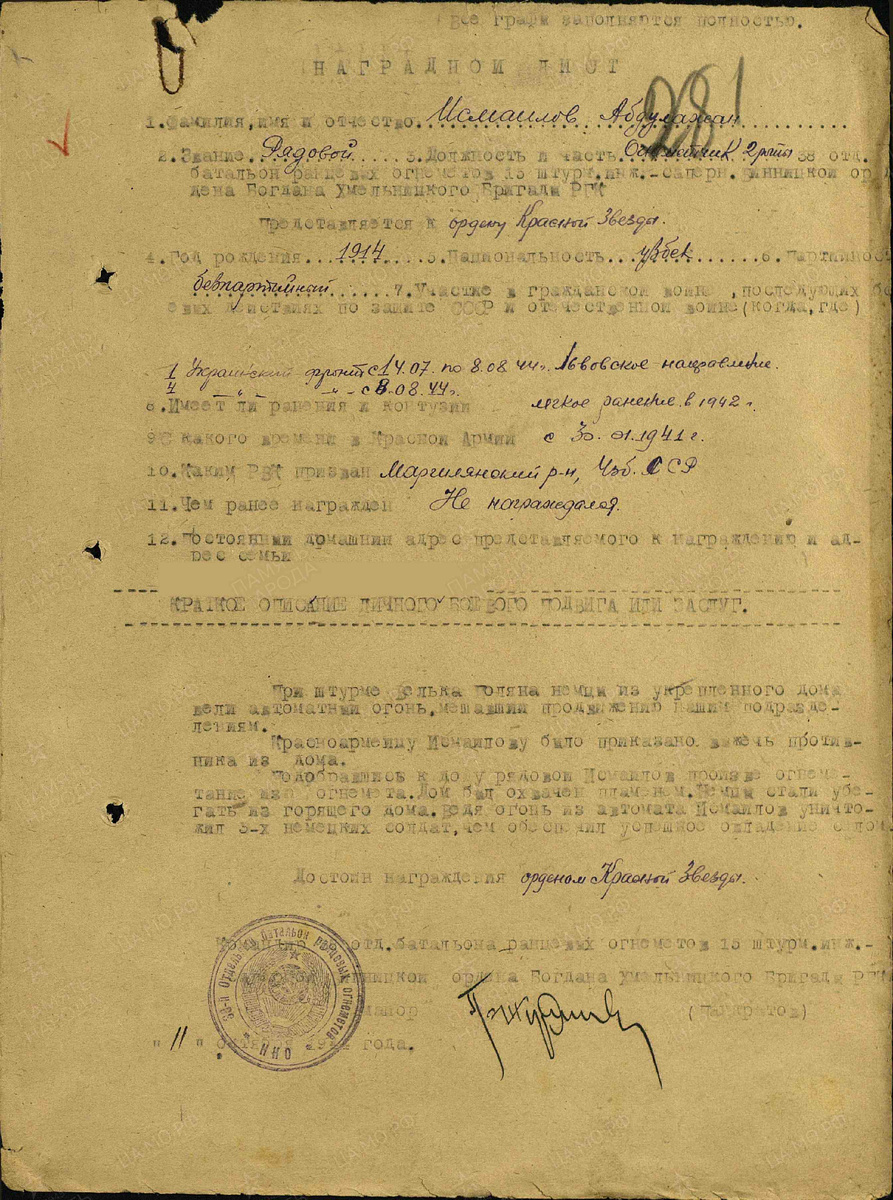 Все графы заполняются полностью.
НАГРАДНОЙ ЛИСТ
281
1.Фамилия,имя и отчество Исмаилов Абдулажан
2.Звание Рядовой 3.Должность и часть Огнеметчик 2 роты 38 отд.
батальон ранцевых огнеметов 15 штурм.инж.-саперн.Винницкой ор
дена Богдана Хмельницкого Бригады РГК
Представляется к ордену Красной Звезды.
4.Год рождения 1914 5.Национальность узбек 6.Партийность
безпартийный 7.Участие в гражданской войне,последующих бо
евых действиях по защите СССР и отечественной войне(когда,где)
1 Украинский фронт с 14.07. по 8.08.44г. Львовское направление.
4 —„— —„— с 8.08.44г.
8.Имеет ли ранения и контузии легкое ранение в 1942г.
9.С какого времени в Красной Армии с 30.01.1941г.
10.Каким РВК призван Маргилянский р-н, Узб. ССР
11.Чем ранее награжден Не награждался.
12.Постоянный домашний адрес представляемого к награждению и ад-
рес семьи
КРАТКОЕ ОПИСАНИЕ ЛИЧНОГО БОЕВОГО ПОДВИГА ИЛИ ЗАСЛУГ.
При штурме Велька Поляна немцы из укрепленного дома
вели автоматный огонь,мешавший продвижению нашим подразде-
лениям.
Красноармейцу Исмаилову было приказано выжечь против-
ника из дома.
Подобравшись к дому рядовой Исмаилов произвел огнеме-
тание из огнемета.Дом был охвачен пламенем.Немцы стали убе-
гать из горящего дома.Ведя огонь из автомата Исмаилов уничто-
жил 3-х немецких солдат,чем обеспечил успешное овладение
Достоин награждения орденом Красной Звезды.
Командир отд.батальона ранцевых огнеметов 15 штурм.инж.-
Винницкой ордена Богдана Хмельницкого Бригады РГК
майор (Панкратов)
"11" октября года.
38-й Отдельный батальон ранцевых огнеметов